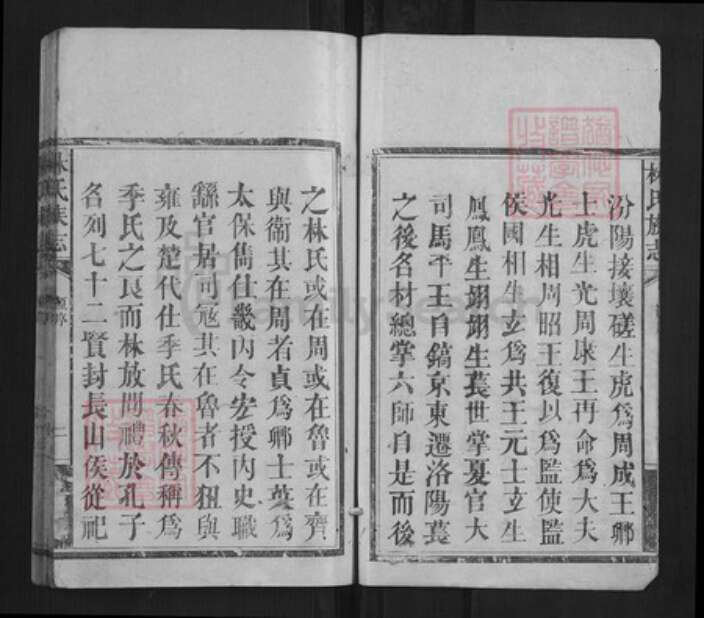 林氏族志
汾陽接壤磋生虎爲周成王卿
士虎生光周康王再命爲大夫
光生相周昭王復以爲監使監
侯國相生玄爲共王元士玄生
鳳鳳生翊翊生萇世掌夏官大
司馬平王自鎬京東遷洛陽萇
之後名材總掌六師自是而後
之林氏或在周或在魯或在齊
與衛其在周者貞爲卿士英爲
太保雋仕畿內令宏授內史職
繇官居司寇其在魯者不狃與
雍及楚代仕季氏春秋傳稱爲
季氏之良而林放問禮於孔子
名列七十二賢封長山侯從祀
林氏族志